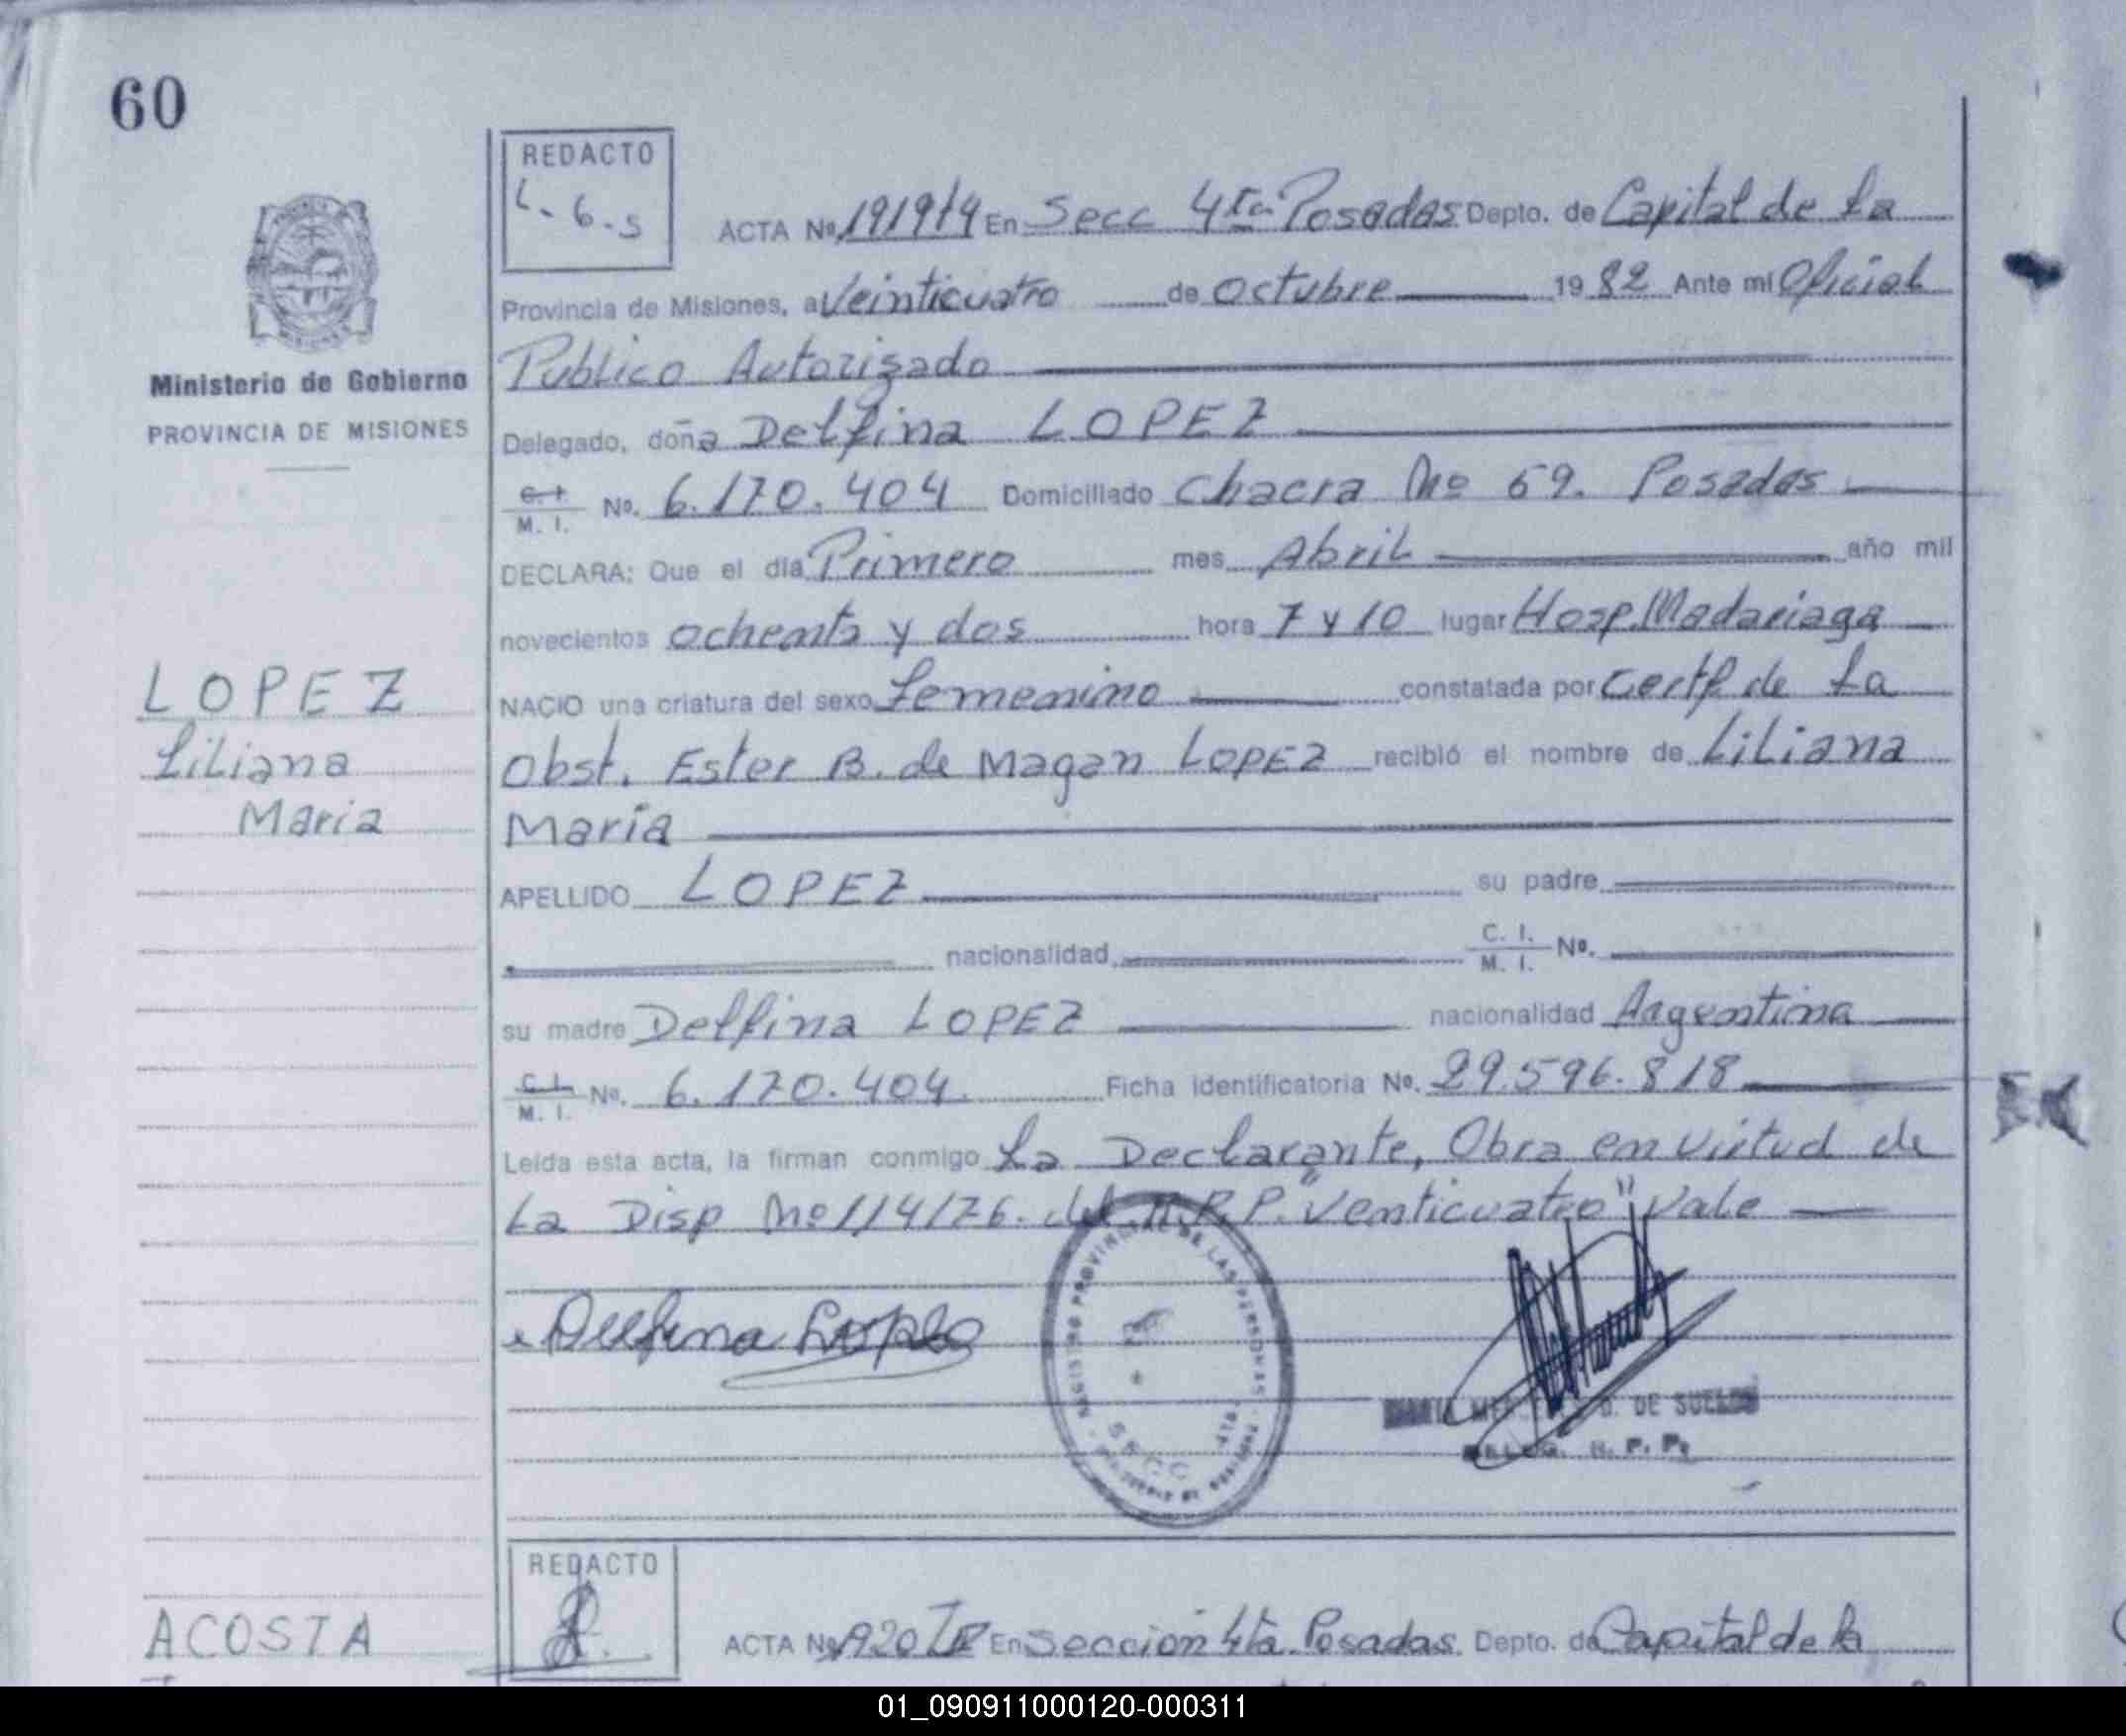 60
REDACTO
L. G. S
ACTA Nº 1919/4 En Secc 4ta Posadas Depto. de Capital de La
Provincia de Misiones, a Veinticuatro de Octubre 1982 Ante mi Oficial
Publico Autorizado
Delegado, doña Delfina LOPEZ
C. I. / M. I. No. 6.170.404 Domiciliado Chacra Nº 69. Posadas
DECLARA: Que el día Primero mes Abril año mil
novecientos ochenta y dos hora 7 y 10 lugar Hosp. Madariaga
NACIO una criatura del sexo femenino constatada por Certf de La
Obst. Ester B. de Magan LOPEZ recibió el nombre de Liliana
María
APELLIDO LOPEZ su padre
nacionalidad C. I. / M. I. Nº.
su madre Delfina LOPEZ nacionalidad Argentina
C. I. / M. I. No. 6.170.404. Ficha identificatoria No. 29.596.818
Leída esta acta, la firman conmigo La Declarante, Obra en virtud de
La Disp Nº 114/76. del R.P.P. "Venticuatro" Vale
Delfina Lopez
REGISTRO PROVINCIAL DE LAS PERSONAS
DE SUELDO
R. P. P.
Ministerio de Gobierno
PROVINCIA DE MISIONES
LOPEZ
Liliana
Maria
REDACTO
ACTA Nº 1920 En Sección 4ta. Posadas Depto. de Capital de la
ACOSTA
01_090911000120-000311